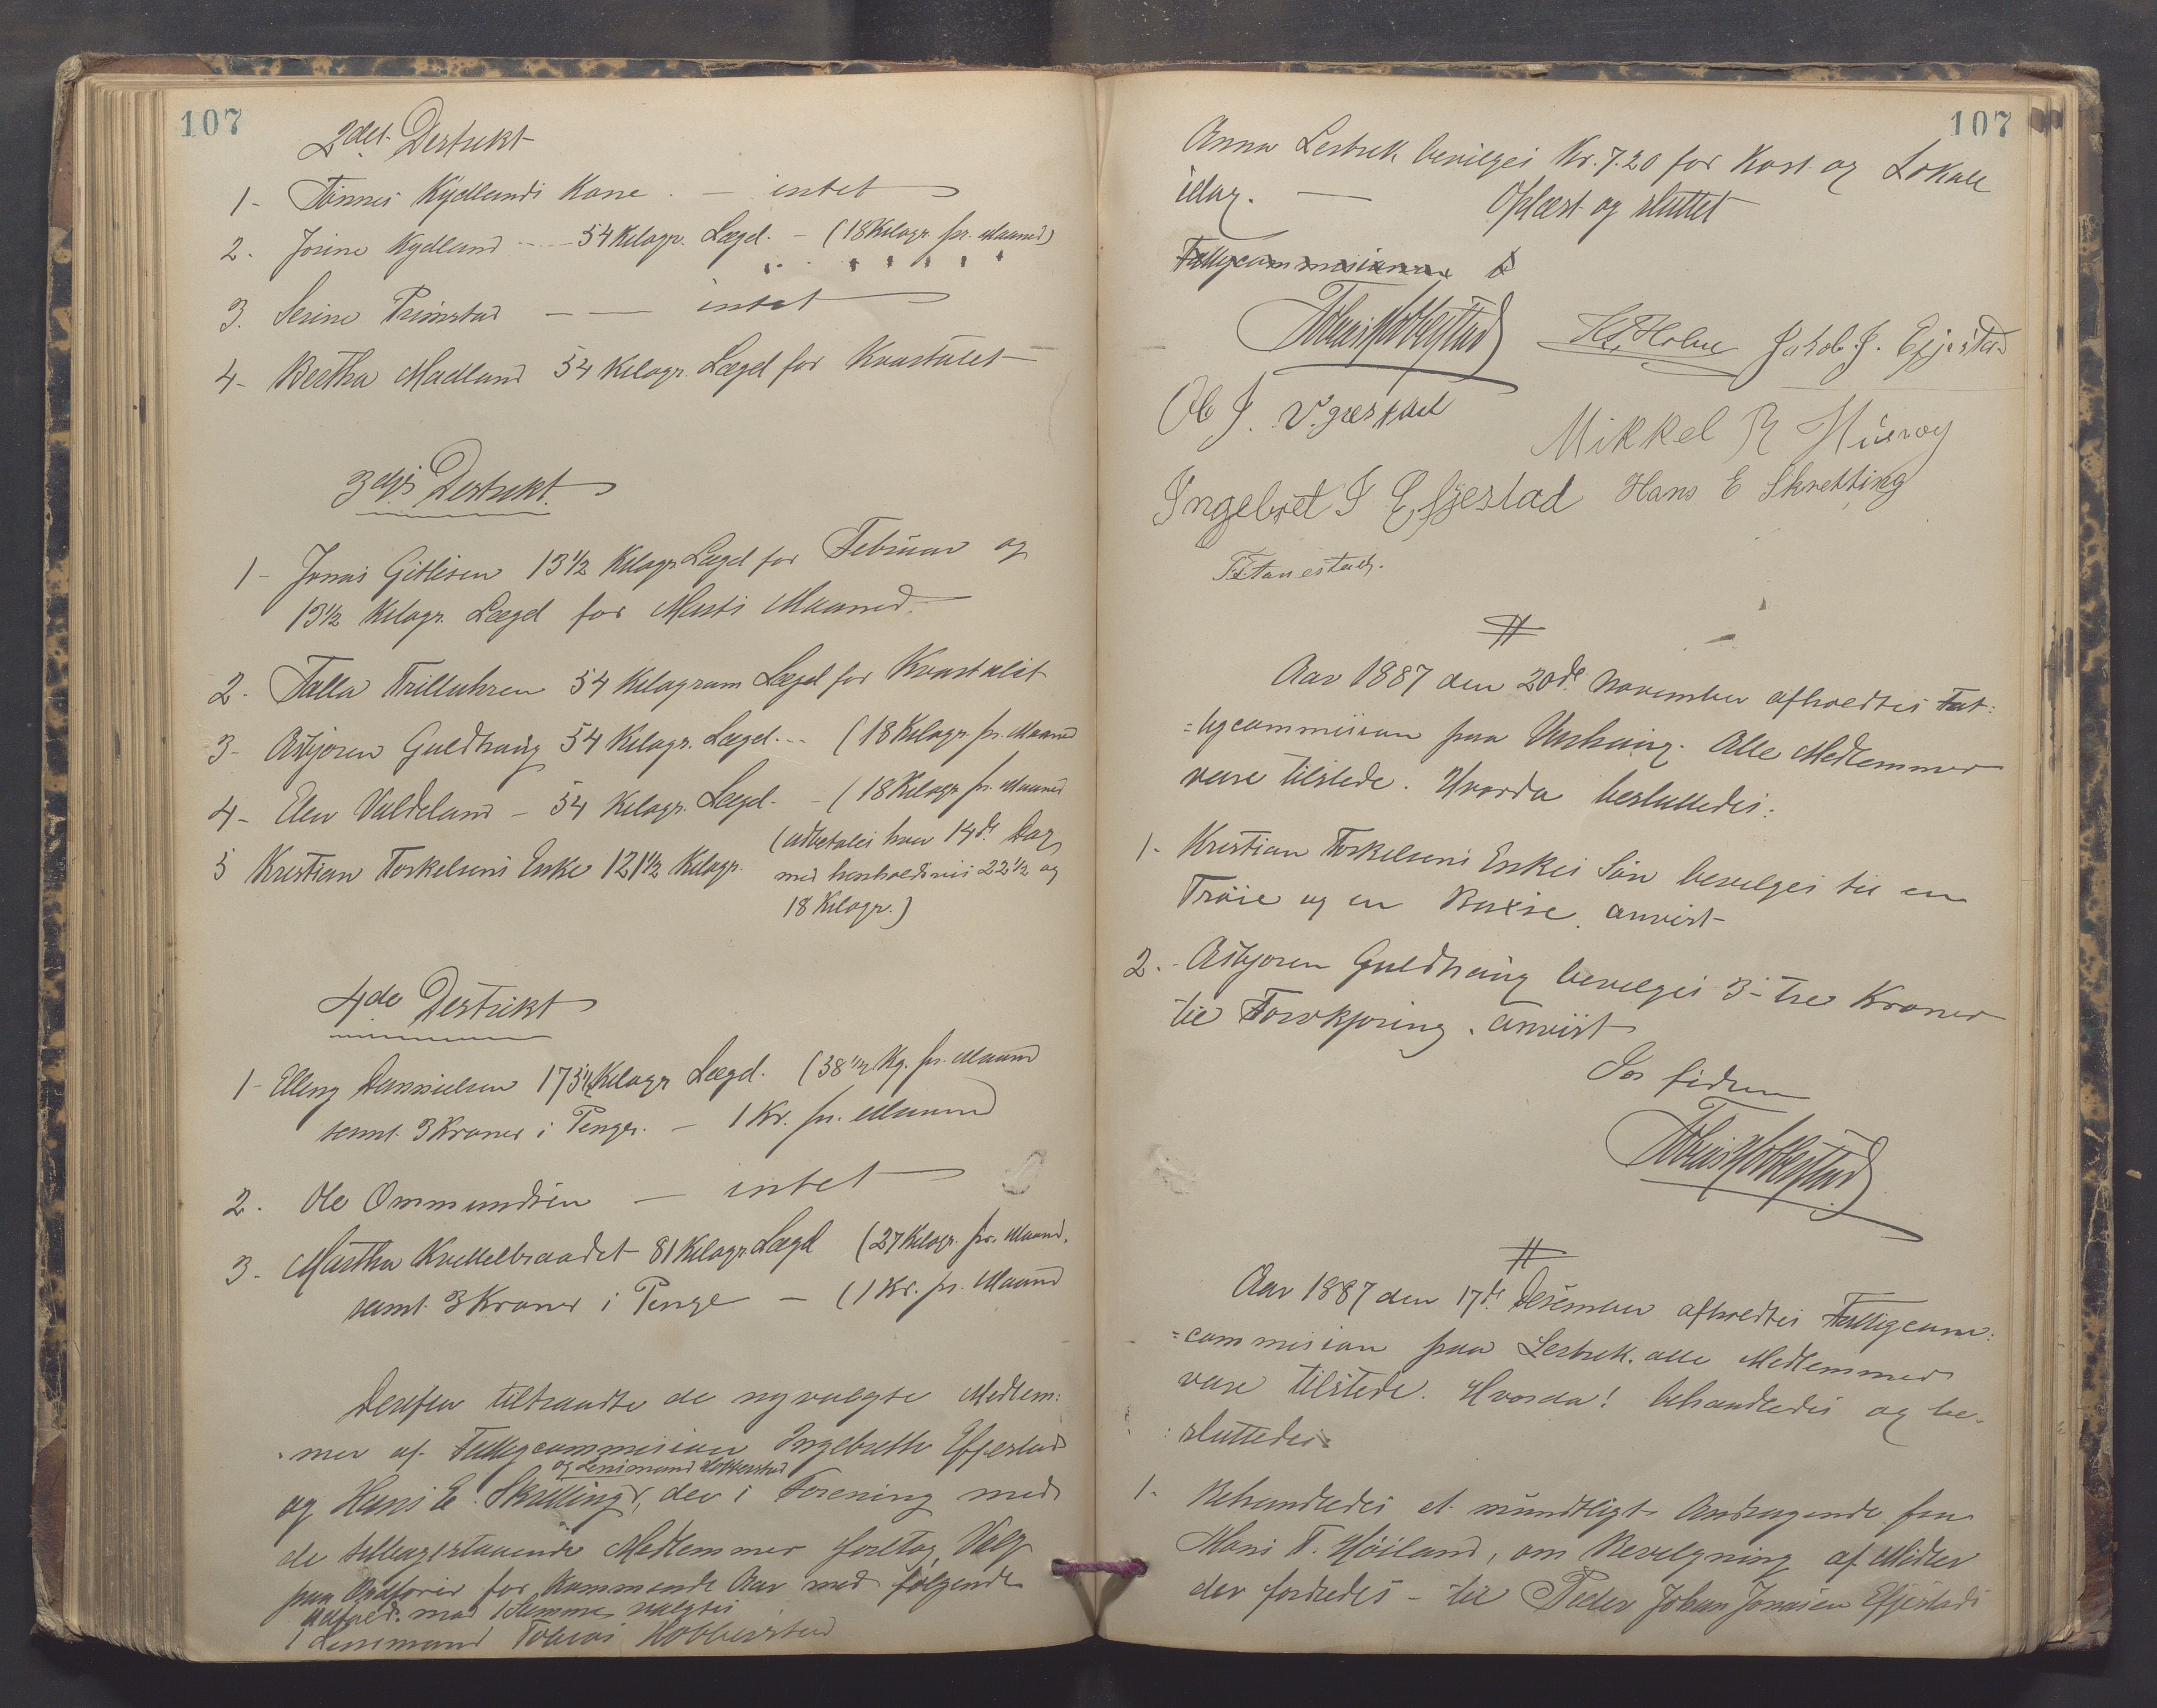 107
2det Destrikt
1- Tønnes Kydlands Kone. — intet
2. Josine Kydland - - - - 54 Kilogr. Lægd. - (18 Kilogr. pr. Maaned)
3. Serine Primstad — — intet
4- Bertha Madland 54 Kilogr. Lægd for Kvartalet
3djs Destrikt
1- Jonas Gitlesen 13 1/2 Kilogr Lægd for Februar og
13 1/2 Kilogr. Lægd for Marts Maaned.
2. Talla Trilluhren 54 Kilogram Lægd for Kvartalet
3- Asbjoren Guldhaug 54 Kilogr. Lægd.-- (18 Kilogr. pr. Maaned
4- Elen Valdeland - 54 Kilogr. Lægd. - (18 Kilogr pr. Maaned
(udbetales hver 14de Dag
5 Kristian Torkelsens Enke 121 1/2 Kilogr. med henholdsvis 22 1/2 og
18 Kilogr.)
4de Destrikt
1- Elling Danielsen Kilogr Lægd. (38 1/2 Kg. pr. Maaned
samt 3 Kroner i Penger. - 1 Kr. pr. Maaned
2. Ole Ommundsen — intet
3- Martha Kvellebraadet 81 Kilogr. Lægd (27 Kilogr. pr. Maaned.
samt 3 Kroner i Penge - (1 Kr. pr. Maaned
Derefter tiltraadte de nyvalgte Medlem:
mer af Fattigcommision Ingebreth Efjestad
og Lensmand Hobberstad
og Hans E. Skretting, der i Forening med
de tilbagestaaende Medlemmer foretog Valg
paa Ordfører for kommende Aar med følgende
Udfald. med 1 Stemme valgtes
Lensmand Tobias Hobberstad
107
Anna Lestrek bevilges Kr. 7.20 for Kost og Lokale
idag. — Oplæst og sluttet
Fattigcommisionen
Tobias Hobberstad Holme Jakob J. Efjestad
Ole J. Vgrestad
Mikkel R Husvog
Ingebret I Efjestad Hans E Skretting
T. Tanestad.
#
Aar 1887 den 20de November afholdtes Fat:
=tigcommision paa Varhaug. Alle Medlemmer
vare tilstede. Hvorda besluttedes:
1- Kristian Torkelsens Enkes Søn bevilges til en
Trøie og en Buxse. anvist
2.- Asbjoren Guldhaug bevilges 3- tre Kroner
til Torvkjøring. anvist
Tobias Hobberstad
#
Aar 1887 den 17de Desember afholdtes Fattigcom:
=commision paa Lestrek. alle Medlemmer
vare tilstede. Hvorda! behandledes og be-
:sluttedes:
1- Behandledes et mundtligt Andragende fra
Hans T. Høiland, om Bevilgning af Midler
der fordredes - til Peder Johan Jonasen Efjestads